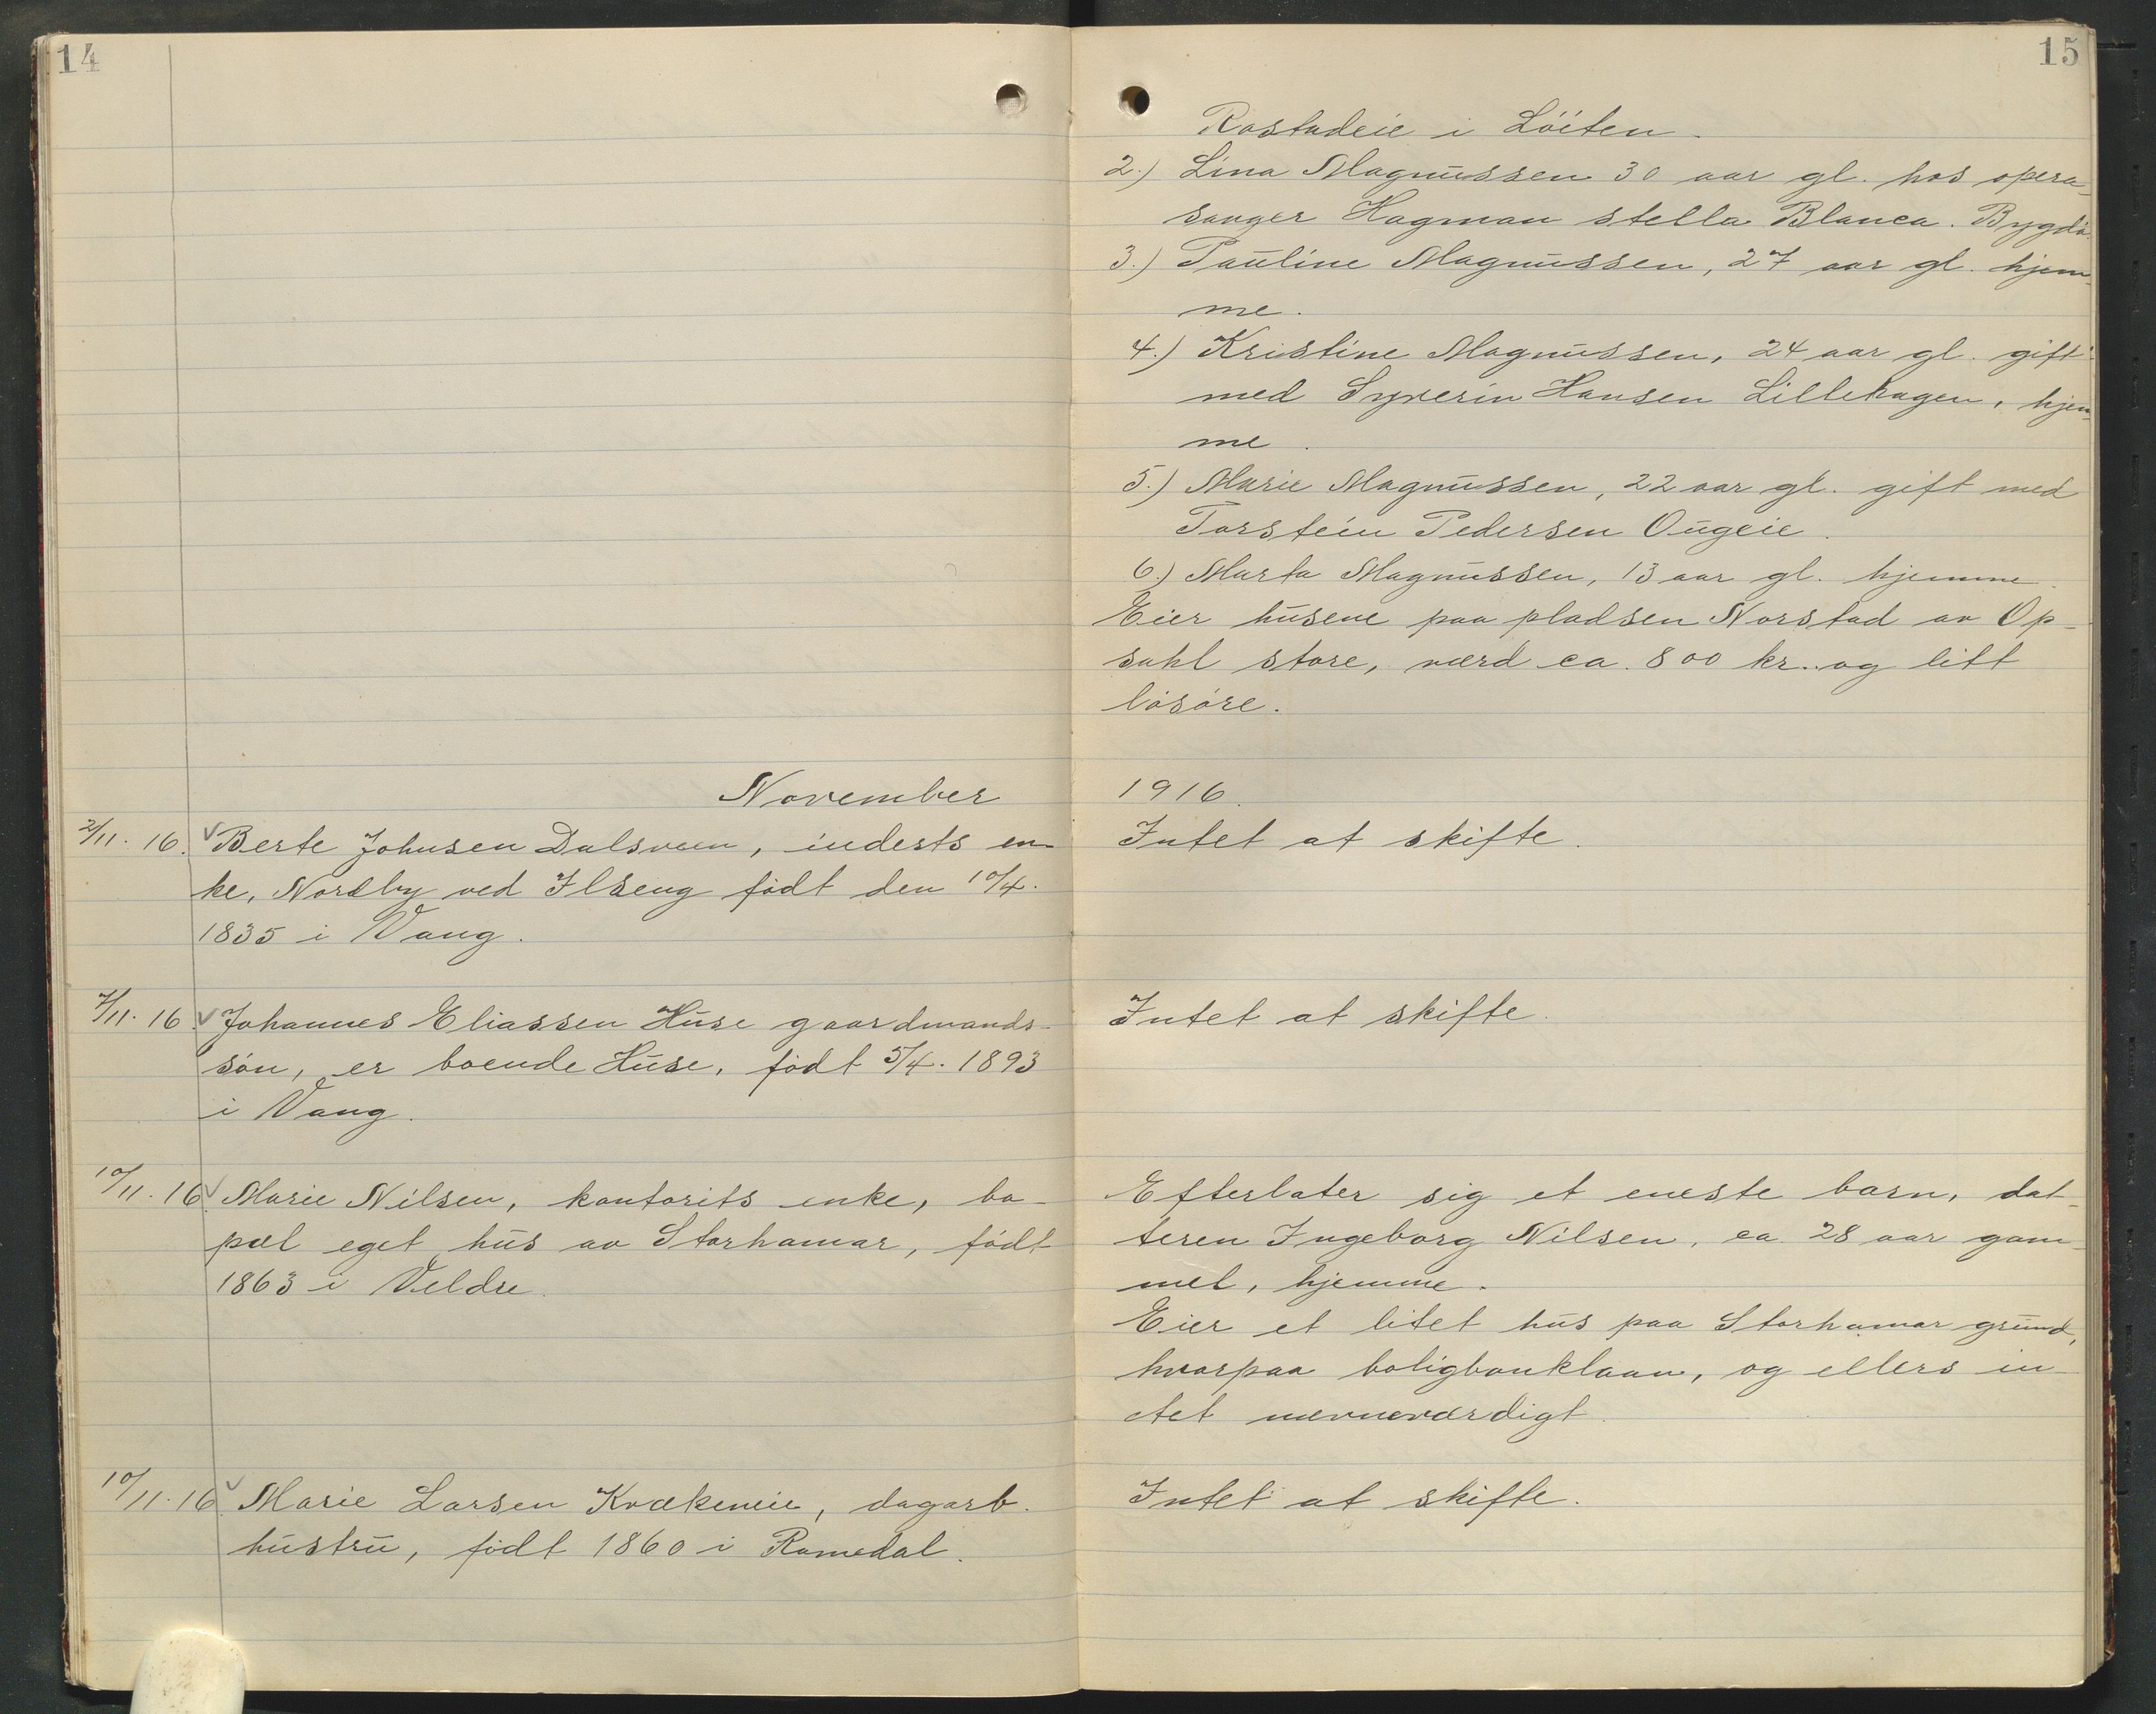 14
November
2/11. 16. Berte Johnsen Dalsveen, inderts en-
ke, Nordby ved Ilseng födt den 10/4.
1835 i Vang.
7/11. 16. Johannes Eliassen Huse gaardmands-
sön, er boende Huse, födt 5/4. 1893
i Vang.
10/11. 16. Marie Nilsen, kontorists enke, bo-
pæl eget hus av Storhamar, födt
1863 i Veldre.
10/11. 16. Marie Larsen Kvækeneie, dagarb.
hustru, födt 1860 i Romedal.
15
Rostadeie i Löiten.
2.) Lina Magnussen 30 aar gl. hos opera-
sanger Hagman stella Blanca. Bygdö.
3.) Pauline Magnussen, 27 aar gl. hjem-
me.
4.) Kristine Magnussen, 24 aar gl. gift
med Syverin Hansen Lillehagen, hjem-
me.
5.) Marie Magnussen, 22 aar gl. gift med
Torstein Pedersen Ougeie.
6.) Marta Magnussen, 13 aar gl. hjemme.
Eier husene paa pladsen Norstad av Op-
sahl store, værd ca. 800 kr. og litt
lösöre.
1916.
Intet at skifte.
Intet at skifte.
Efterlater sig et eneste barn, dat-
teren Ingeborg Nilsen, ca. 28 aar gam-
mel, hjemme.
Eier et litet hus paa Storhamar grund,
hvorpaa boligbanklaan, og ellers in-
tet nævneværdigt.
Intet at skifte.